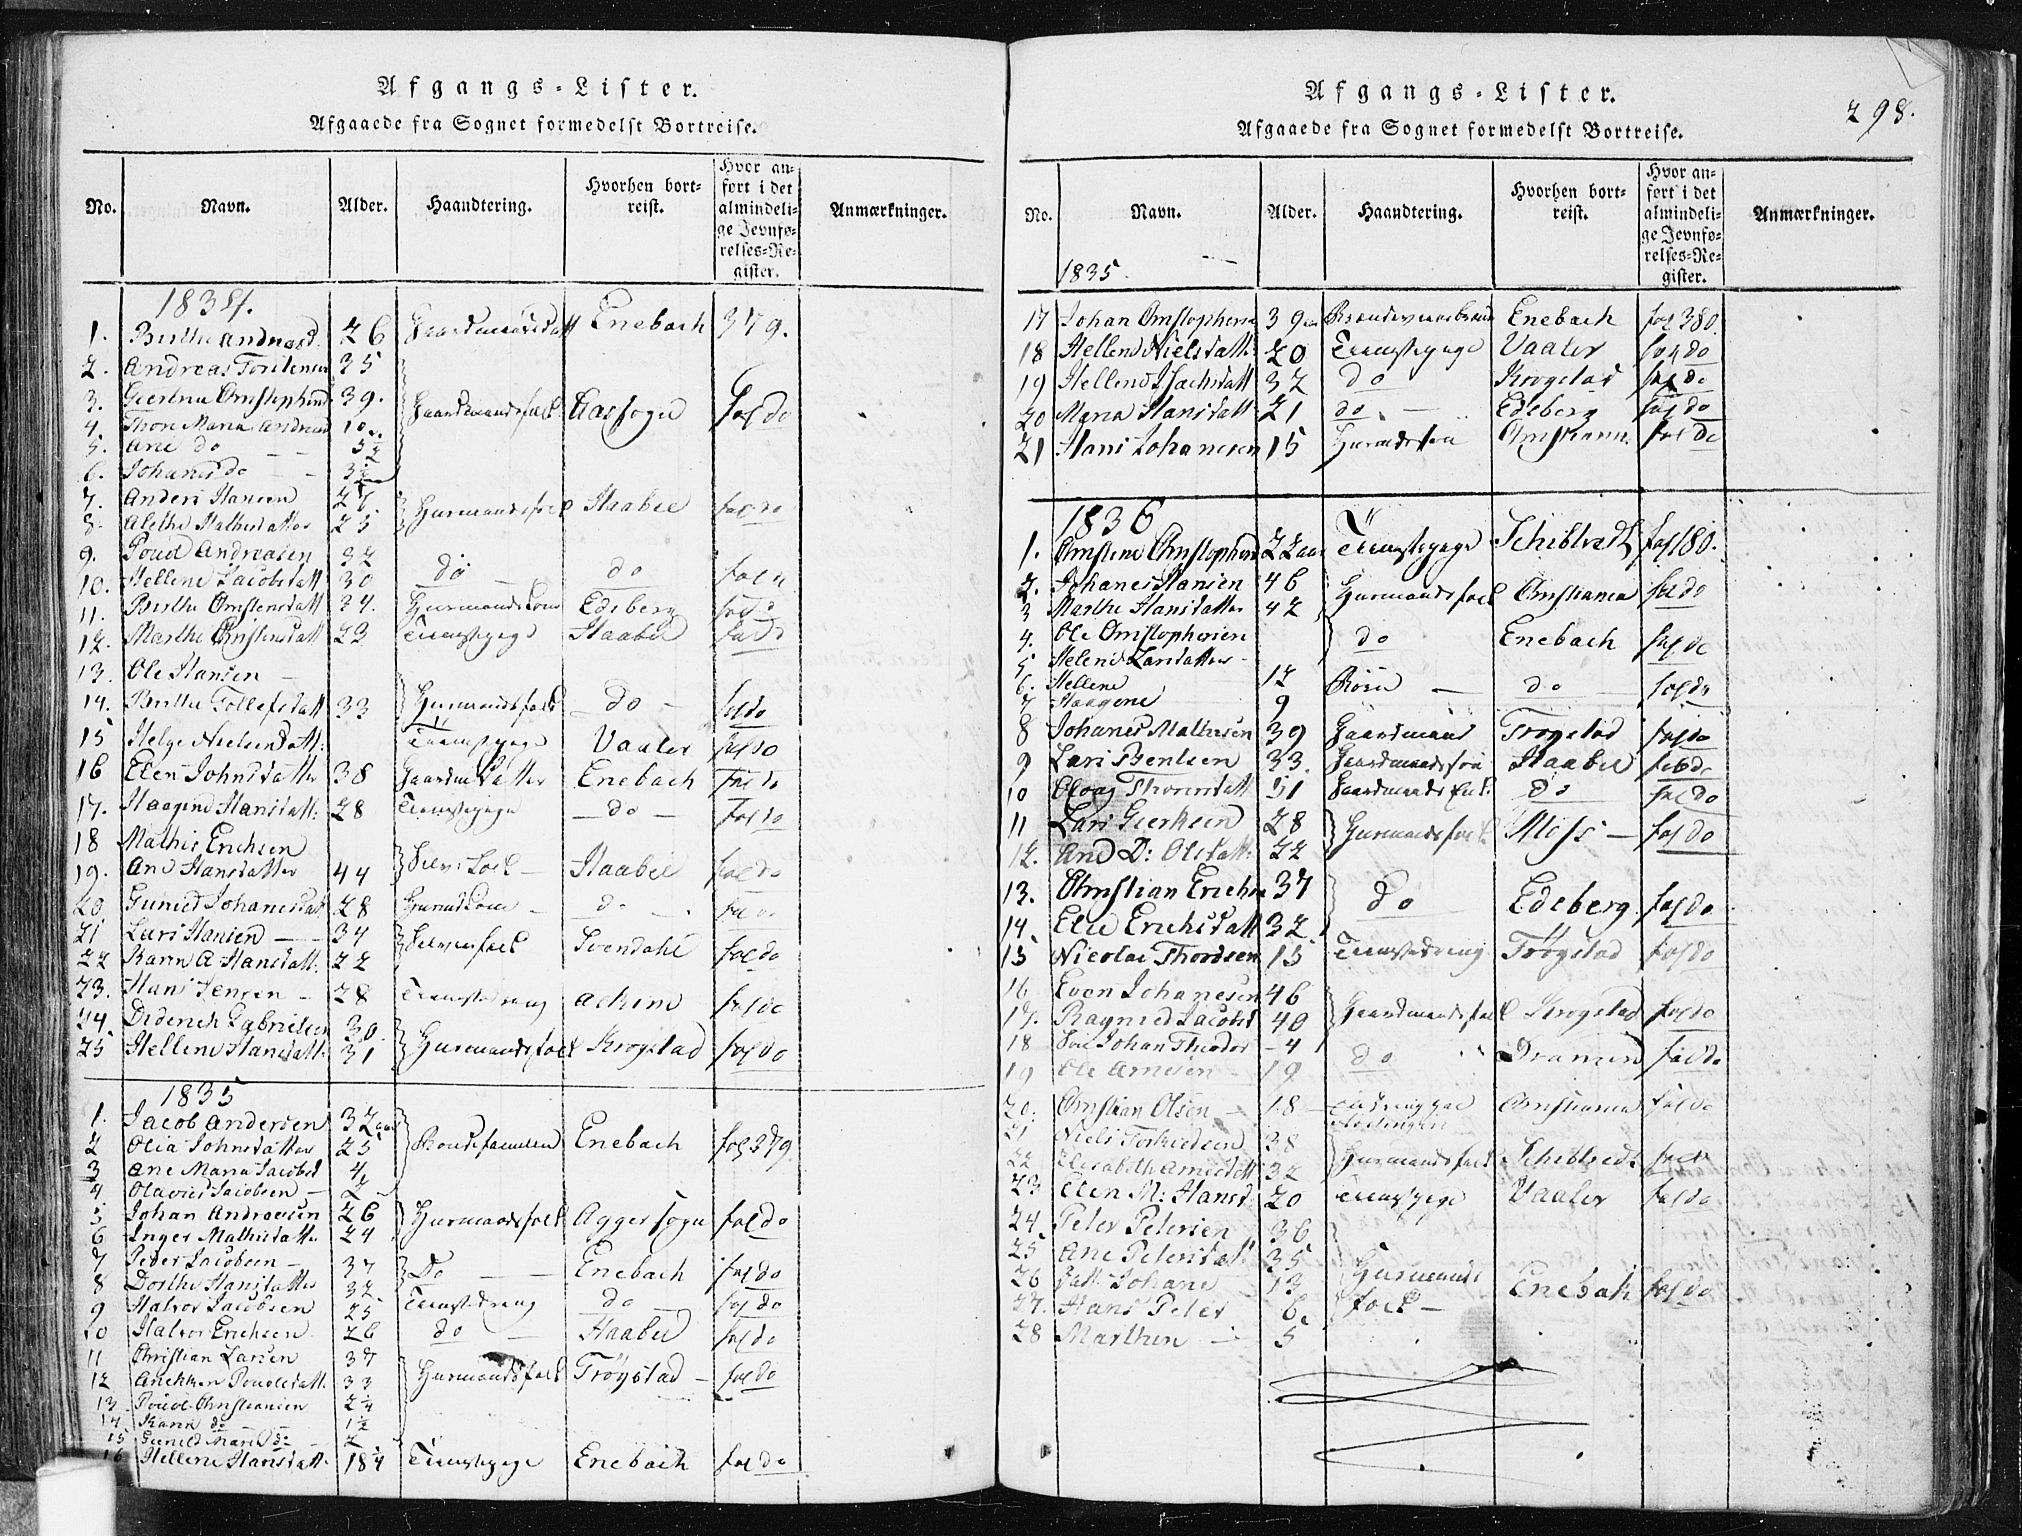 Afgangs-Lister.
Afgaaede fra Sognet formedelst Bortreise.
No. Navn. Alder. Haandtering. Hvorhen bortreist. Hvor anført i det almindelige Jevnførelses-Register. Anmærkninger.
1834.
1. Berthe Andreasd. 26 Gaardmandsdatt Enebach 379.
2. Andreas Torstensen 35
3. Giertru Christophersd 39. Gaardmandsfolk Aas sogn fol do
4. Thore Maria Andreasd 10
5. Ane do
6. Johanes do 3½
7. Anders Hansen Huusmandsfolk Haabøl fol do
8. Alethe Mathisdatter 25
9. Poul Andreasen 32 do do
10. Hellene Jacobsdatt 30
11. Berthe Christensdatt 34. Huusmandskone Edeberg fol do
12. Marthe Christensdatt 23 Tienestepige Haabøl fol do
13. Ole Hansen
14. Berthe Tollefsdatt 33 Huusmandsfolk do fol do
15 Helge Nielsendatt: Tienestepige Vaaler fol do
16 Elen Johnsdatter 38 Gaardm Datter Enebach fol do
17. Haagine Hansdatt: 28 Tienestepige do fol do
18 Mathis Erichsen
19. Ane Hansdatter 44 Haabøl fol do
20 Gunild Johanesdatt 28 do
21 Lars Hansen 34 fol do
22 Karen A Hansdatt. 22
23. Hans Jensen 28 Tienestedreng fol do
24. Diderich Gabrielsen 30.
25 Hellene Hansdatt. 31 Huusmandsfolk Krogstad fol do
1835
1. Jacob Andersen 32 aar
2 Olia Johnsdatter 25 Enebach fol 379
3 Ane Maria Jacobsd 4
4. Olavus Jacobsen 2
5 Johan Andreasen 26 Huusmandsfolk Agger sogn fol do
6 Inger Mathisdatter 24
7 Peder Jacobsen 37 Do Enebach fol do
8 Dorthe Hansdatter 32.
9 Halvor Jacobsen 25 Tienestedreng do fol do
10 Halvor Erichsen 26 do Haabøl fol do
11 Christian Larsen 37
12 Anekken Poulsdatt. 33 Huusmandsfolk Trøgstad fol do
13 Poul Christiansen 2¼
14 Karen do 1½
15 Guneld Marie do 2
16 Hellene Hansdatt. 18¼ Tienestepige Enebach fol do
Afgangs-Lister.
298.
Afgaaede fra Sognet formedelst Bortreise.
No. Navn. Alder. Haandtering. Hvorhen bortreist. Hvor anført i det almindelige Jevnførelses-Register. Anmærkninger.
1835.
17 Johan Christophersen 39 aar Enebach fol 380.
18 Hellene Nielsdatt. 20 Tienestepige Vaaler fol do
19 Hellene Isachsdatt 32 do Krogstad fol do
20 Maria Hansdatt 21 do Edeberg fol do
21 Hans Johanesen 15 Huusmdssøn Christiania. fol do
1836
1. Christine Christophersd 22 aar Tienestepige Schibtvedt fol 180.
2. Johanes Hansen 46 Huusmandsfolk Christiania fol do
3 Marthe Hansdatter 42
4. Ole Christophersen do Enebach fol do
5 Helene Larsdatter
6. Hellene 12 Børn do fol do
7 Haagene 9
8 Johanes Mathisen 39 Gaardmand Trøgstad fol do
9 Lars Bentsen 33. Gaardmandssøn Haabøl fol do
10 Thoresdatt 51 Gaardmands Enke do fol do
11 Lars Gierksen 28 Huusmandsfolk Moss fol do
12. Ane D: Olsdatt: 22
13. Christian Erichsen 37 do Edeberg fol do
14. Elie Erichsdatt 32
15 Nicolai Thordsen 15 Tienestedreng Trøgstad fol do
16 Even Johanesen 46
17. Ragnild Jacobsd 40 Gaardmandsfolk Krogstad fol do
18 Søn Johan Theodor 4
19 Ole Arnesen 19 do Dramen fol do
20. Christian Olsen 18 Christiania fol do
21 Niels Torkildsen 38
22 Elisabeth Arnesdatt 32 Huusmandsfolk Schibtvedt
23 Elen M: Hansd. 20 Tienestepige Vaaler fol do
24. Peter Petersen 36
25 Ane Petersdatt 35
26 Datt. Johane 13 Huusmands Enebak fol do
27. Hans Peter 6. folk
28 Marthin 5